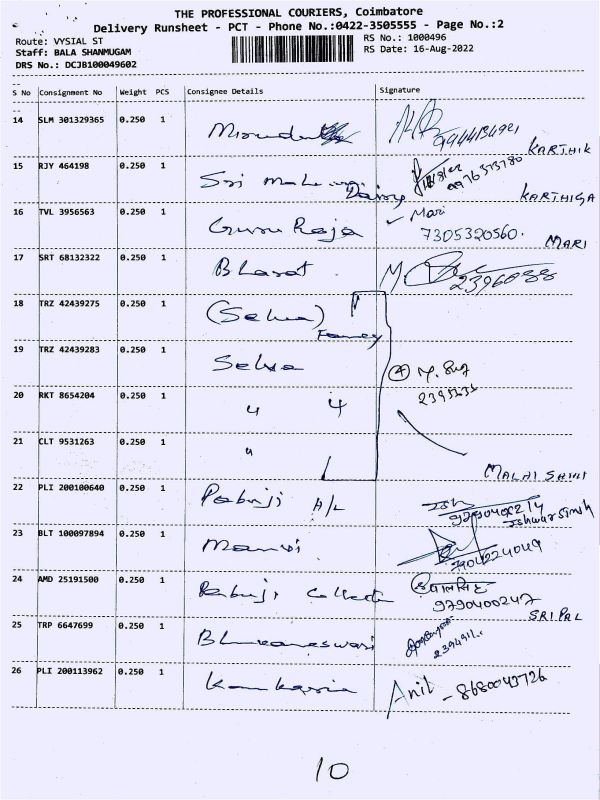 THE PROFESSIONAL COURIERS, Coimbatore
Delivery Runsheet - PCT - Phone No.:0422-3505555 - Page No.:2
Route: VYSIAL ST
RS No.: 1000496
Staff: BALA SHANMUGAM
RS Date: 16-Aug-2022
DRS No.: DCJB100049602
S No Consignment No Weight PCS Consignee Details Signature
14 SLM 301329365 0.250 1
KARTHIK
15 RJY 464198 0.250 1 Sri
Dairy
KARTHIGA
16 TVL 3956563 0.250 1 Guru Raja Mari
7305320560.
MARI
17 SRT 68132322 0.250 1 Bharat
18 TRZ 42439275 0.250 1 (Selva)
Fancy
19 TRZ 42439283 0.250 1 Selva
4
20 RKT 8654204 0.250 1 " 4
21 CLT 9531263 0.250 1 "
22 PLI 200100640 0.250 1 Pabuji A/L
Ishwar Singh
23 BLT 100097894 0.250 1
24 AMD 25191500 0.250 1 Pabuji
9790400247
SRIPAL
25 TRP 6647699 0.250 1 Bhuvaneswari
26 PLI 200113962 0.250 1 Anil - 8680043726
10